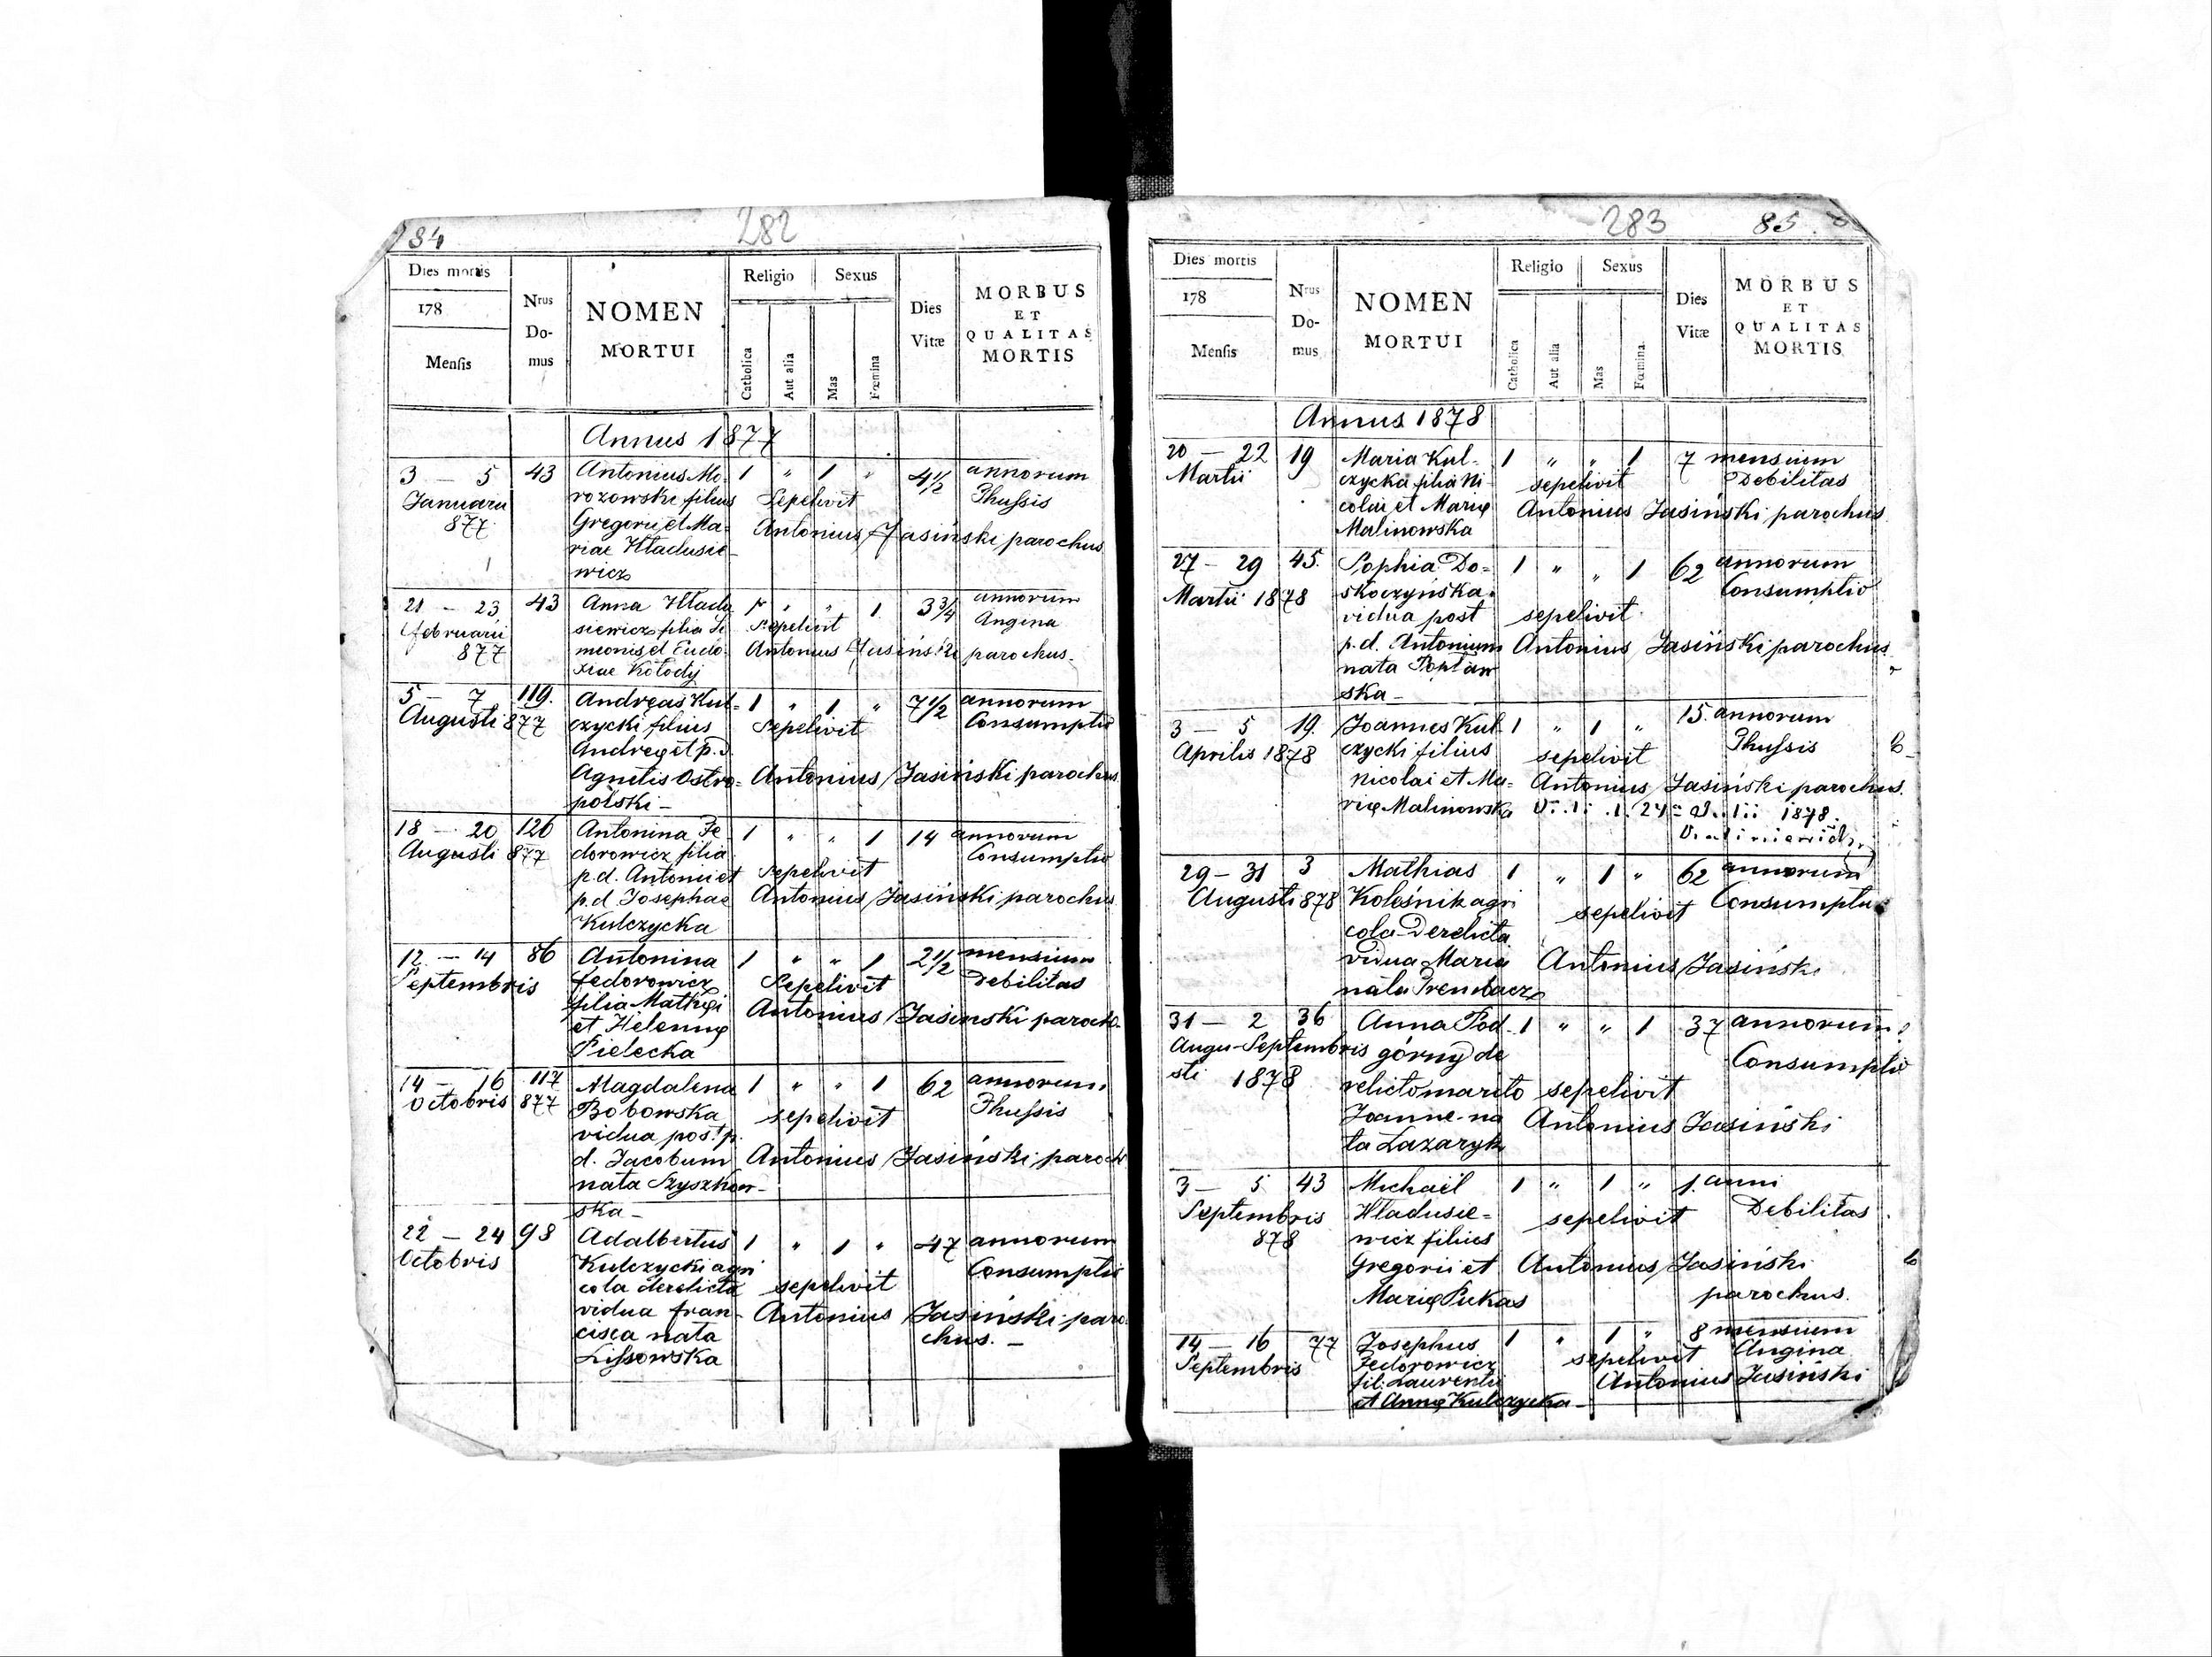 84
282
Dies mortis
178
Mensis
Nrus Do-mus
NOMEN MORTUI
Religio
Catholica
Aut alia
Sexus
Mas
Fœmina
Dies Vitæ
MORBUS ET QUALITAS MORTIS
Annus 1877
3 — 5 43 Antonius Mo- 1 " 1 " 4½ annorum
Januarii rozowski filius Sepelivit Thussis
877 Gregorii et Ma- Antonius Jasiński parochus
riae Hladusie-
wicz
21 — 23 43 Anna Hladu 1 " " 1 3¾ annorum
februarii siewicz filia Si Sepelivit Angina
877 meonis et Eudo Antonius Jasiński parochus
xiae Kołodij
5 — 7 119. Andreas Kul- 1 " 1 " 7½ annorum
Augusti 877 czycki filius Sepelivit Consumptio
Andreę et p.d.
Agnetis Ostro- Antonius Jasiński parochus
polski —
18 — 20 126 Antonina Fe 1 " " 1 14 annorum
Augusti 877 dorowicz filia Consumptio
p.d. Antonii et Sepelivit
p.d. Josephae Antonius Jasiński parochus
Kulczycka
12 — 14 86 Antonina 1 " " 1 2½ mensium
Septembris fedorowicz Sepelivit Debilitas
filia Mathęi
et Helennę Antonius Jasinski paroch-
Pielecka
14 — 16 117 Magdalena 1 " " 1 62 annorum
Octobris 877 Bobowska sepelivit Thussis
vidua post p.
d. Jacobum Antonius Jasiński paroch
nata Szyszkow-
ska —
22 — 24 98 Adalbertus 1 " 1 " 47 annorum
Octobris Kulczycki agri Consumptio
cola derelicta sepelivit
vidua fran- Antonius Jasiński paro
cisca nata chus. —
Lissowska
283
85.
Dies mortis
178
Mensis
Nrus Do-mus
NOMEN MORTUI
Religio
Catholica
Aut alia
Sexus
Mas
Fœmina.
Dies Vitæ
MORBUS ET QUALITAS MORTIS
Annus 1878
20 — 22 19 Maria Kul- 1 " " 1 7 mensium
Martii czycka filia Ni sepelivit Debilitas
colai et Marię Antonius Jasiński parochus
Malinowska
27 — 29 45. Sophia Do- 1 " " 1 62 annorum
Martii 1878 skoczyńska Consumptio
vidua post sepelivit
p.d. Antonium Antonius Jasiński parochus
nata Poplaw
ska —
3 — 5 19. Joannes Kul 1 " 1 " 15 annorum
Aprilis 1878 czycki filius sepelivit Thussis
Nicolai et Ma- Antonius Jasiński parochus.
rię Malinowska 24 1878.
29 — 31 3 Mathias 1 " 1 " 62 annorum
Augusti 878 Koleśnik agri sepelivit Consumptio
cola Derelicta
vidua Maria Antonius Jasiński
nata
31 — 2 36 Anna Pod- 1 " " 1 37 annorum
Augu-Septembris górny de Consumptio
sti 1878 relicto marito sepelivit
Joanne na Antonius Jasiński
ta Lazaryk
3 — 5 43 Michaël 1 " 1 " 1. anni
Septembris Hladusie- sepelivit Debilitas
878 wicz filius
Gregorii et Antonius Jasiński
Marię Pukas parochus.
14 — 16 77 Josephus 1 " 1 " 8 mensium
Septembris Fedorowicz sepelivit Angina
fil: Laurentii Antonius Jasiński
et Annę Kulczycka —